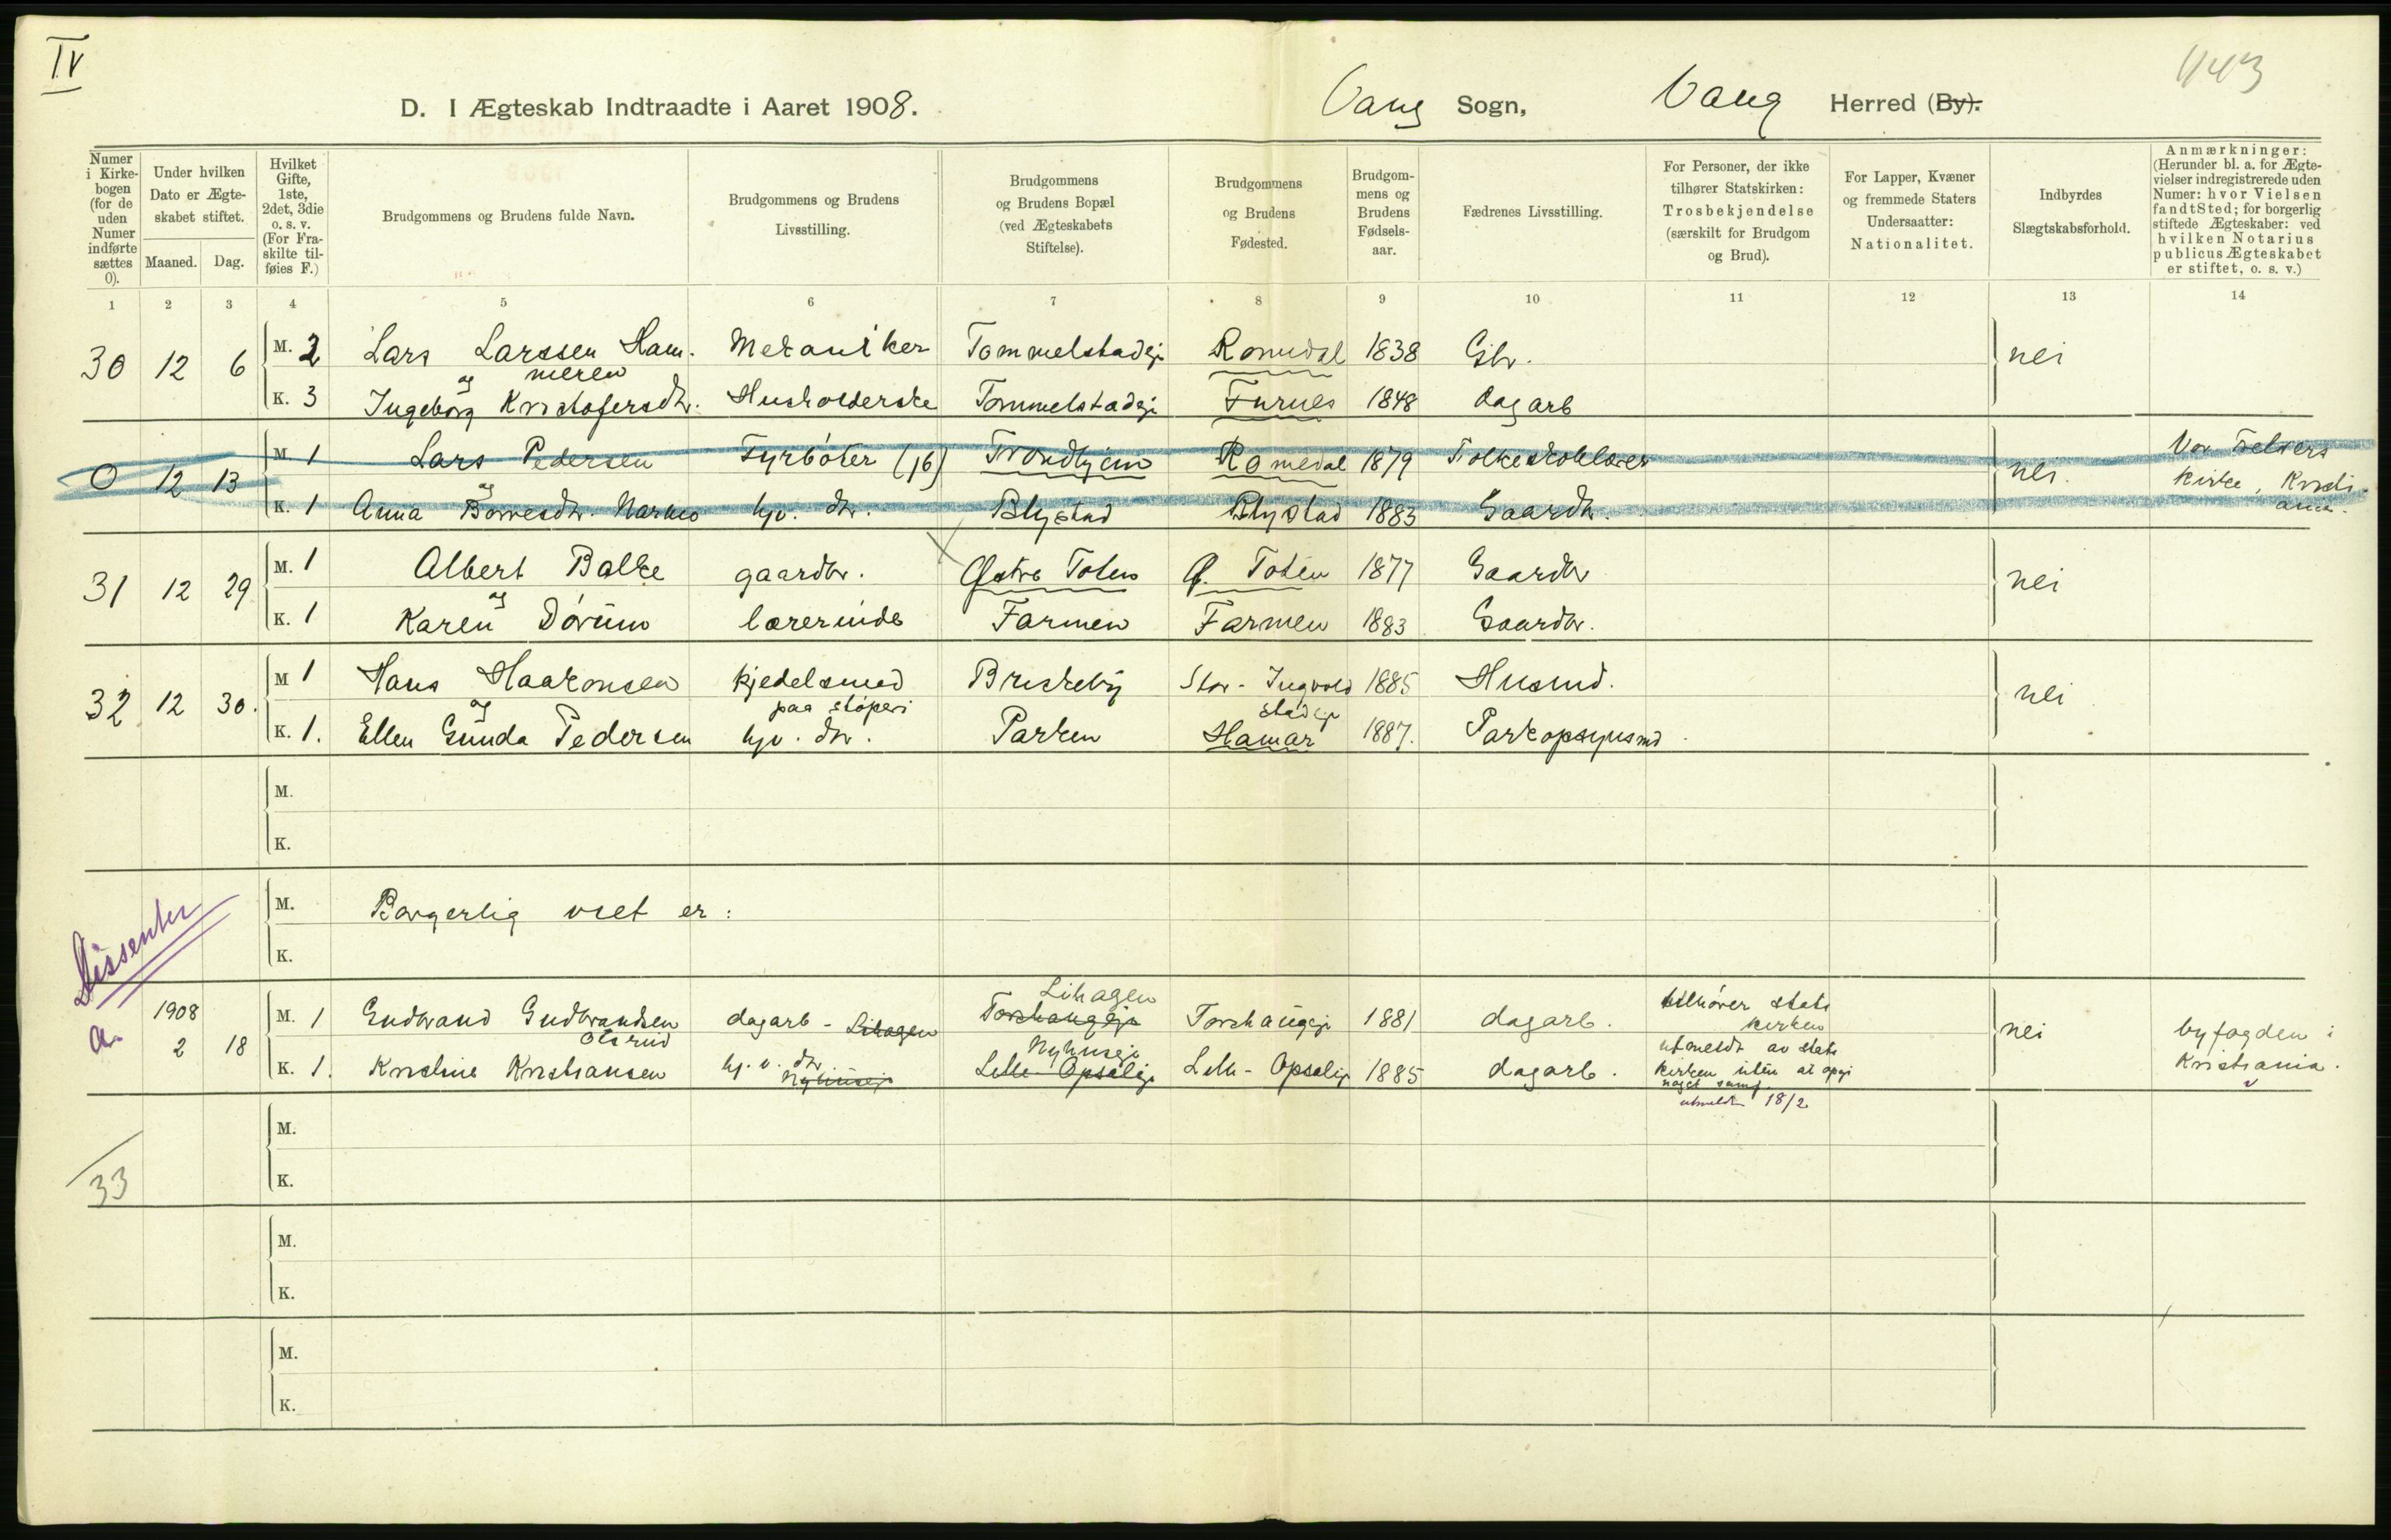 IV
443
D. I Ægteskab Indtraadte i Aaret 1908. Vang Sogn, Vang Herred (By).
Numer i Kirkebogen (for de uden Numer indførte sættes 0).
Under hvilken Dato er Ægteskabet stiftet.
Maaned. Dag.
Hvilket Gifte, 1ste, 2det, 3die o. s. v. (For Fraskilte tilføies F.)
Brudgommens og Brudens fulde Navn.
Brudgommens og Brudens Livsstilling.
Brudgommens og Brudens Bopæl (ved Ægteskabets Stiftelse).
Brudgommens og Brudens Fødested.
Brudgommens og Brudens Fødselsaar.
Fædrenes Livsstilling.
For Personer, der ikke tilhører Statskirken: Trosbekjendelse (særskilt for Brudgom og Brud).
For Lapper, Kvæner og fremmede Staters Undersaatter: Nationalitet.
Indbyrdes Slægtskabsforhold.
Anmærkninger: (Herunder bl. a. for Ægtevielser indregistrerede uden Numer: hvor Vielsen fandt Sted; for borgerlig stiftede Ægteskaber: ved hvilken Notarius publicus Ægteskabet er stiftet, o. s. v.)
1 2 3 4 5 6 7 8 9 10 11 12 13 14
30 12 6 M. 2 Lars Larssen Ham. Mekaniker Tommelstadeje Romedal 1838 Gbr. nei
og meren
K. 3 Ingeborg Kristofersdtr. Husholderske Tommelstadeje Furnes 1848 dagarb
0 12 13 M. 1 Lars Pedersen Fyrbøter (16) Trondhjem Romedal 1879 Folkeskolelærer nei. Vor Frelsers
og kirke, Kristi
K. 1 Anna Borresdtr. hjv. dtr. Blystad Blystad 1883 Gaardbr. ania.
31 12 29 M. 1 Albert Balke gaardbr. Østre Toten Ø. Toten 1877 Gaardbr nei
og
K. 1 Karen Dørum lærerinde Farmen Farmen 1883 Gaardbr.
32 12 30. M 1 Hans Haakonsen kjedelsmed Briskeby Stor-Ingvold 1885 Husmd. nei
og paa støperi stadeje
K. 1. Ellen Gunda Pedersen hjv. dtr. Parken Hamar 1887. Parkopsynsmd.
M.
K.
Dissenter
M. Borgerlig viet er:
K.
Lihagen
a. 1908 M. 1 Gudbrand Gudbrandsen dagarb - Lihagen Torshaugeje Torshaugeje 1881 dagarb. tilhører stats
kirken
2 18 Olsrud Nyhuseje utmeldt av stats nei byfogden i
K. 1. Kristine Kristiansen hj. v. dtr Nyhuseje Lille-Opsaleje Lille-Opsaleje 1885 dagarb. kirken uten at opgi Kristiania.
noget samf.
utmeldt 18/2
M.
33
K.
M.
K.
M.
K.